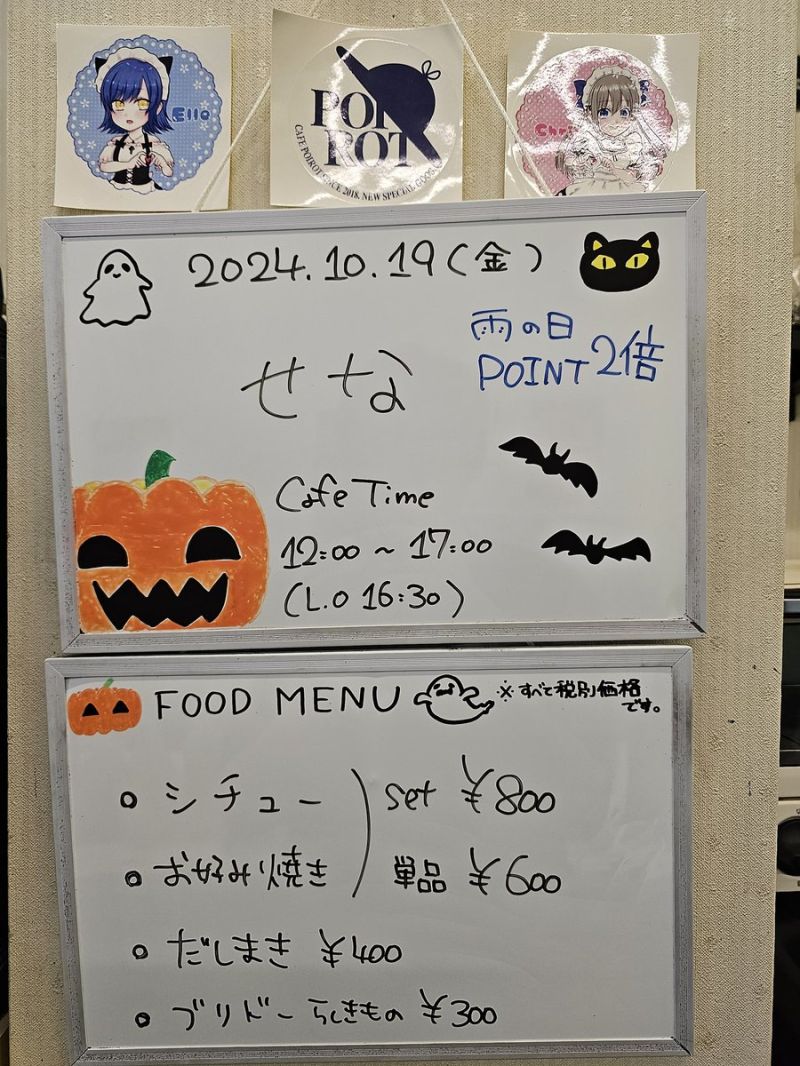 Ella
POIROT
CAFE POIROT SINCE 2018. NEW SPECIAL GOODS
Chri
2024.10.19(金)
雨の日
POINT 2倍
せな
Cafe Time
12:00 ~ 17:00
(L.O 16:30)
FOOD MENU
※すべて税別価格
です。
• シチュー
set ¥800
• お好み焼き
単品 ¥600
• だしまき ¥400
• ブリドーらしきもの ¥300